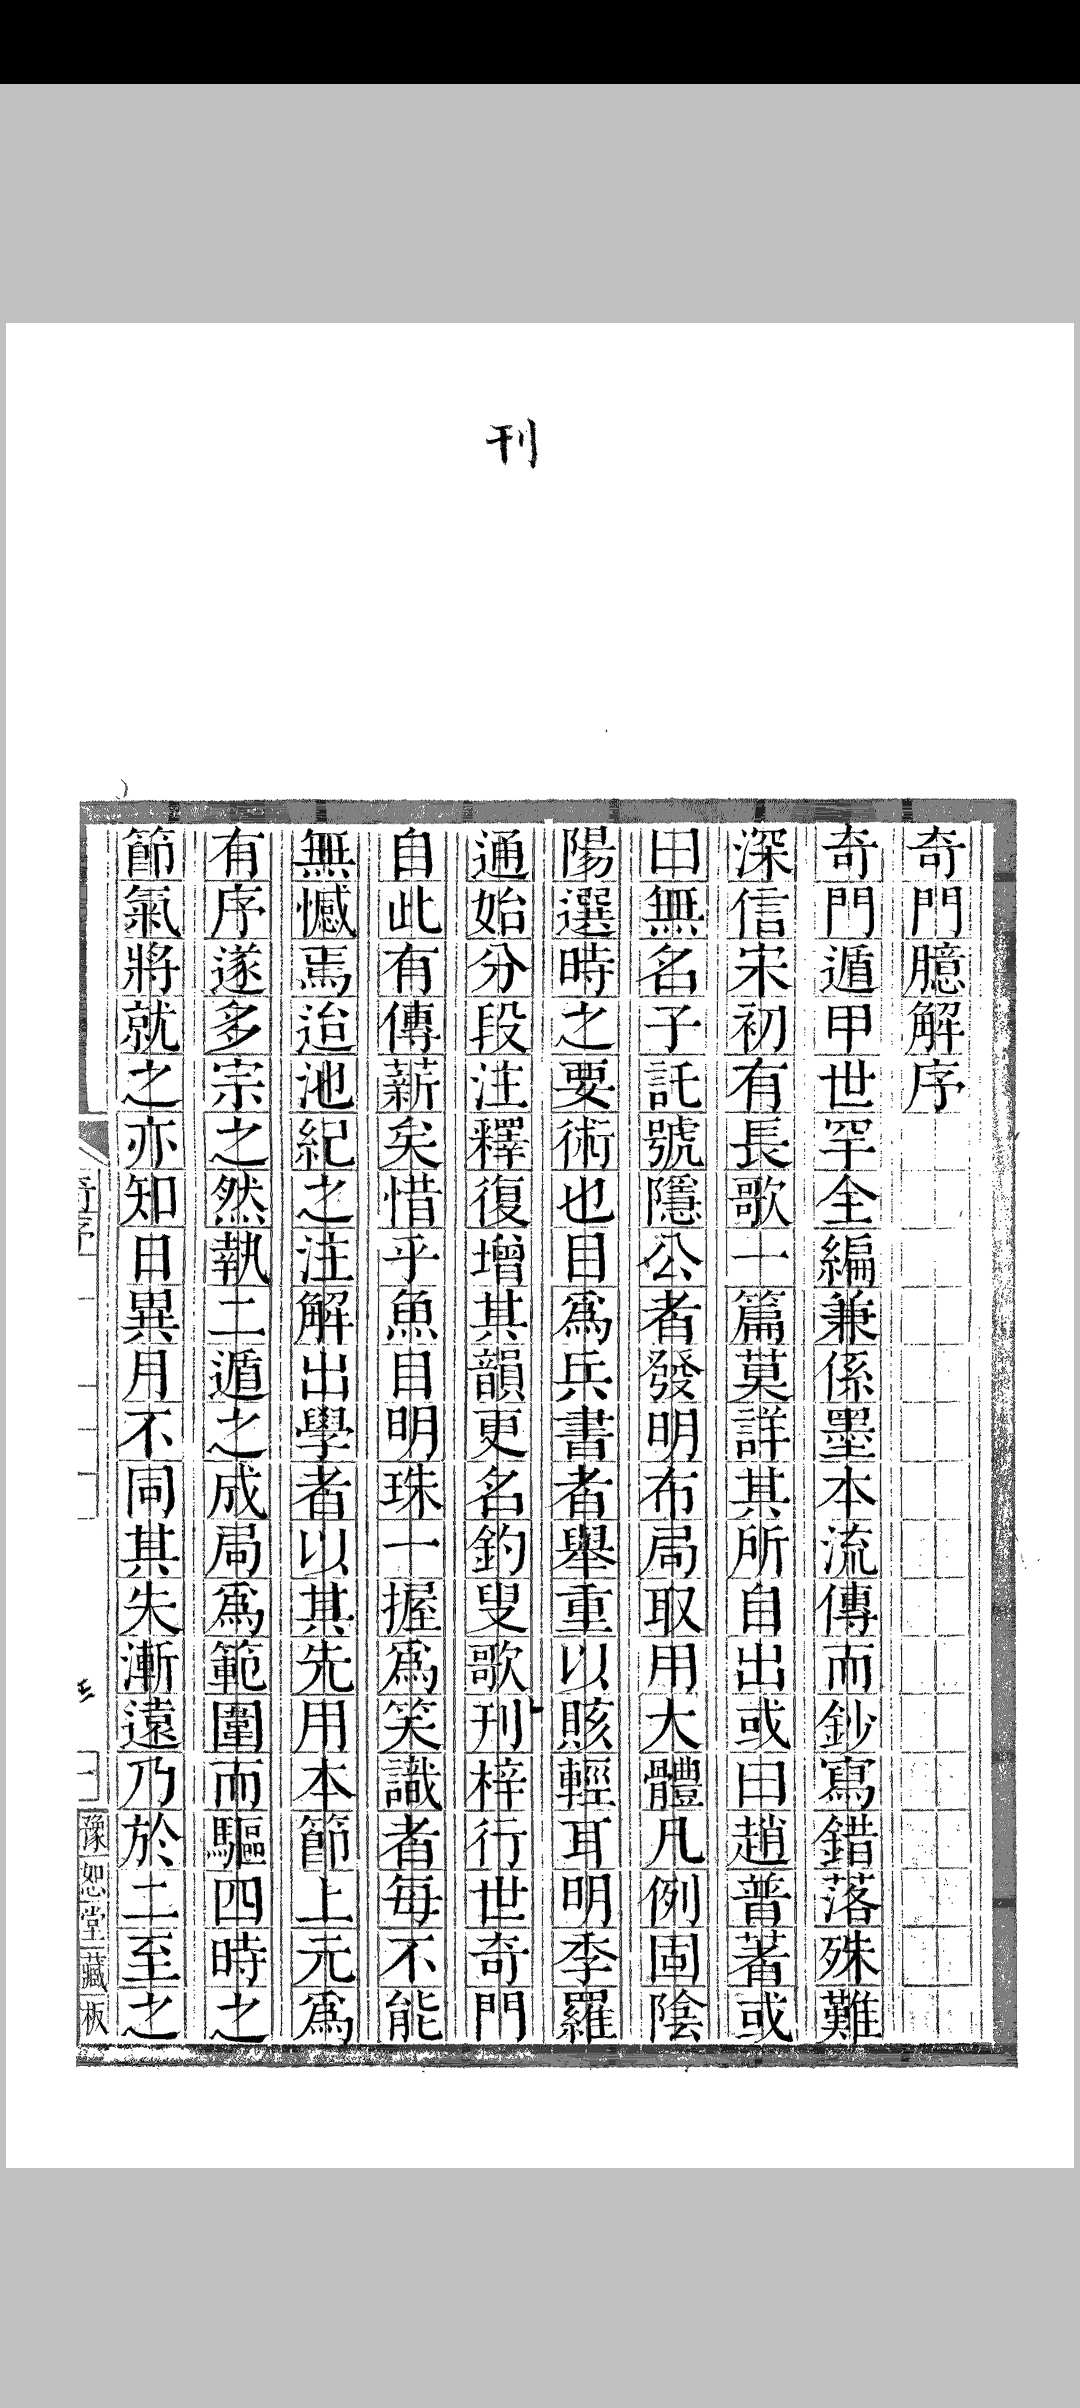 刊
奇門臆解序
奇門遁甲世罕全編兼係墨本流傳而鈔寫錯落殊難
深信宋初有長歌一篇莫詳其所自出或曰趙普著或
曰無名子託號隱公者發明布局取用大體凡例固陰
陽選時之要術也目爲兵書者舉重以賅輕耳明季羅
通始分段注釋復增其韻更名釣叟歌刊梓行世奇門
自此有傳薪矣惜乎魚目明珠一握爲笑識者每不能
無憾焉迨池紀之注解出學者以其先用本節上元爲
有序遂多宗之然執二遁之成局爲範圍而驅四時之
節氣將就之亦知日異月不同其失漸遠乃於二至之
奇序
豫恕堂藏板